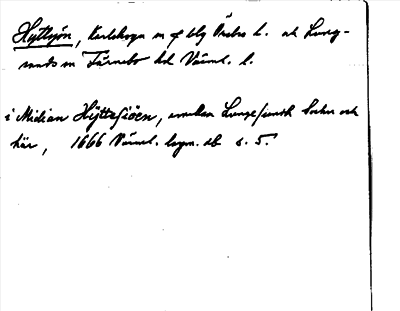 Hyttsjön, Karlskoga sn o blg Örebro l. och Lung-
sunds sn Färnebo hd Värml. l.
i Midian Hÿttesiöen, emellan Lunge/sundh Sochn och
här, 1666 Värml. lagm. db s. 5.